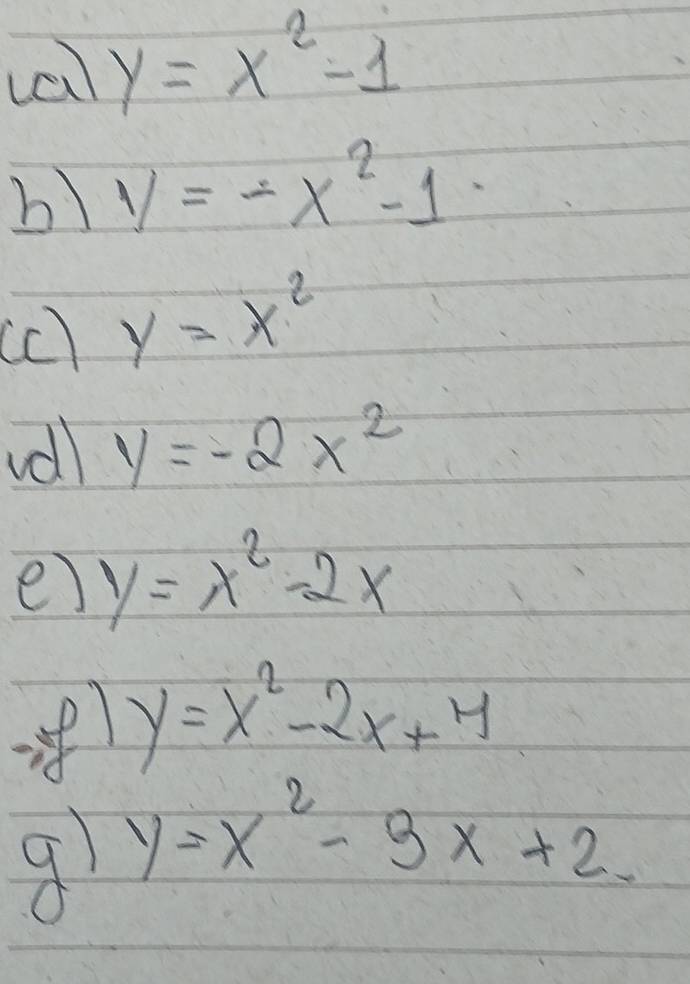 a) y = x² - 1
b) y = - x² - 1
c) y = x²
d) y = -2x²
e) y = x² - 2x
f) y = x² - 2x + 4
g) y = x² - 3x + 2